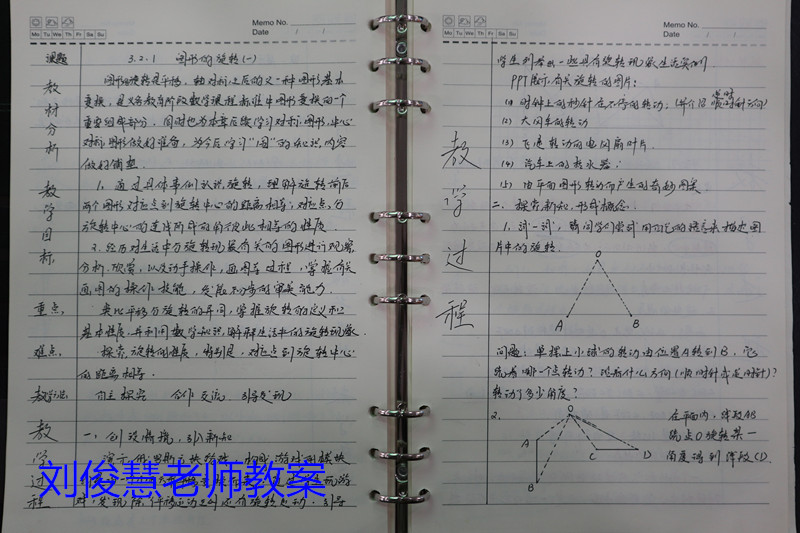 Memo No.
Mo Tu We Th Fr Sa Su
Date / /
课题 3.2.1 图形的旋转(一)
教材分析
图形的旋转是平移、轴对称之后的又一种图形基本
变换,是义务教育阶段数学课程标准中图形变换的一个
重要组成部分,同时也为本章后续学习对称图形,中心
对称图形做好准备,为今后学习"圆"的知识内容
做好铺垫.
教学目标
1. 通过具体事例认识旋转,理解旋转前后
两个图形对应点到旋转中心的距离相等;对应点与
旋转中心的连线所成的角彼此相等的性质.
2. 经历对生活中与旋转现象有关的图形进行观察
分析、欣赏,以及动手操作、画图等过程,掌握有关
画图的操作技能,发展初步的审美能力.
重点:
类比平移与旋转的异同,掌握旋转的定义和
基本性质,并利用数学知识解释生活中的旋转现象.
难点:
探索旋转的性质,特别是,对应点到旋转中心
的距离相等.
自主探究 合作交流 引导发现
教学过程
一、创设情境,引入新知
刘俊慧老师教案
Memo No.
Mo Tu We Th Fr Sa Su
Date / /
学生列举出一些具有旋转现象生活实例
PPT展示有关旋转的图片:
(1) 时钟上的秒针在不停的转动;
(2) 大风车的转动
(3) 飞速转动的电风扇叶片.
(4) 汽车上的刮水器;
(5) 由平面图形转动而产生的奇妙图案.
教学过程
二、探索新知,形成概念.
1. 试一试,请同学们尝试用自己的语言来描述图
片中的旋转.
O
A B
问题:单摆上小球的转动由位置A转到B,它
绕着哪一个点转动?沿着什么方向(顺时针或逆时针)?
转动了多少角度?
2.
O
A
B
C D
在平面内,线段AB
绕点O旋转某一
角度得到线段CD